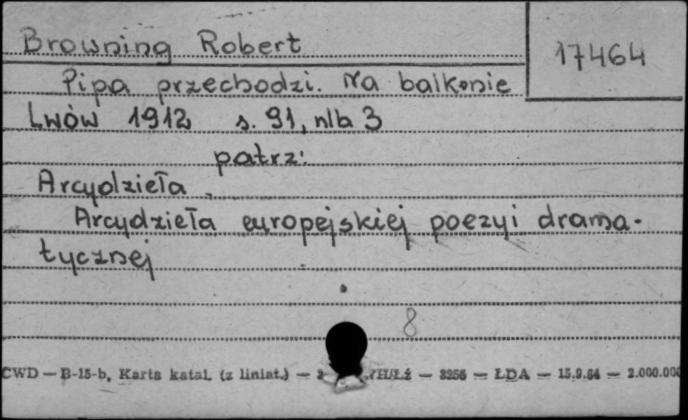 Browning Robert
17464
Pipa przechodzi. Na balkonie
Lwów 1912 s. 91, nlb 3
patrz:
Arcydzieła
Arcydzieła europejskiej poezyi drama-
tycznej
8
CWD — B-15-b, Karta katal. (z liniat.) — H/Łź — 3256 — ŁDA — 15.9.64 — 2.000.000